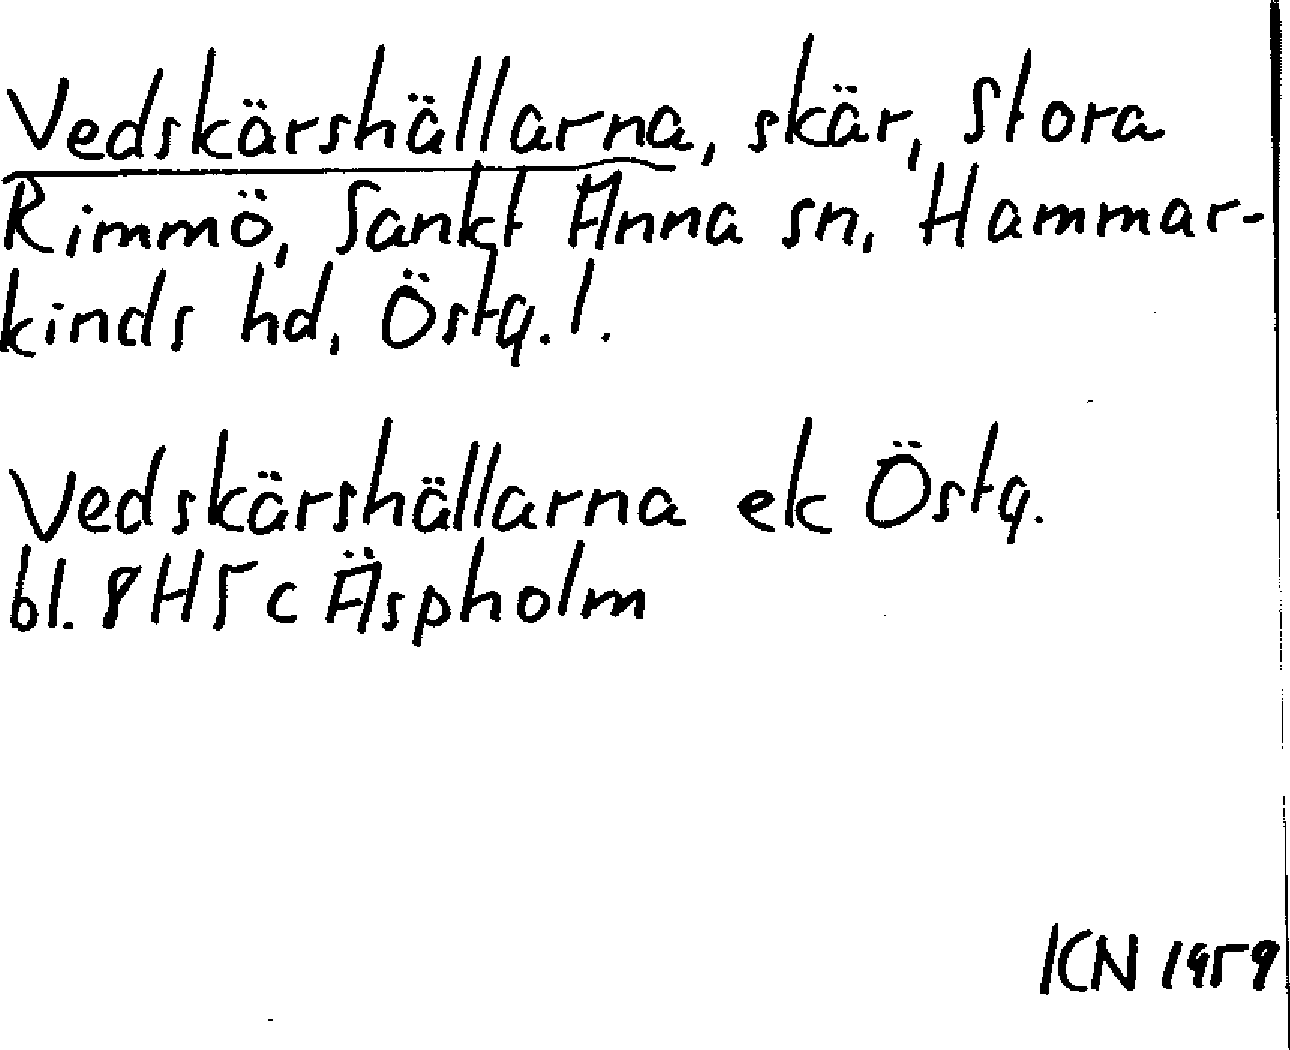 Vedskärshällarna, skär, Stora
Rimmö, Sankt Anna sn, Hammar-
kinds hd, Östg. l.
Vedskärshällarna ek Östg.
bl. 8H5c Äspholm
KN 1959